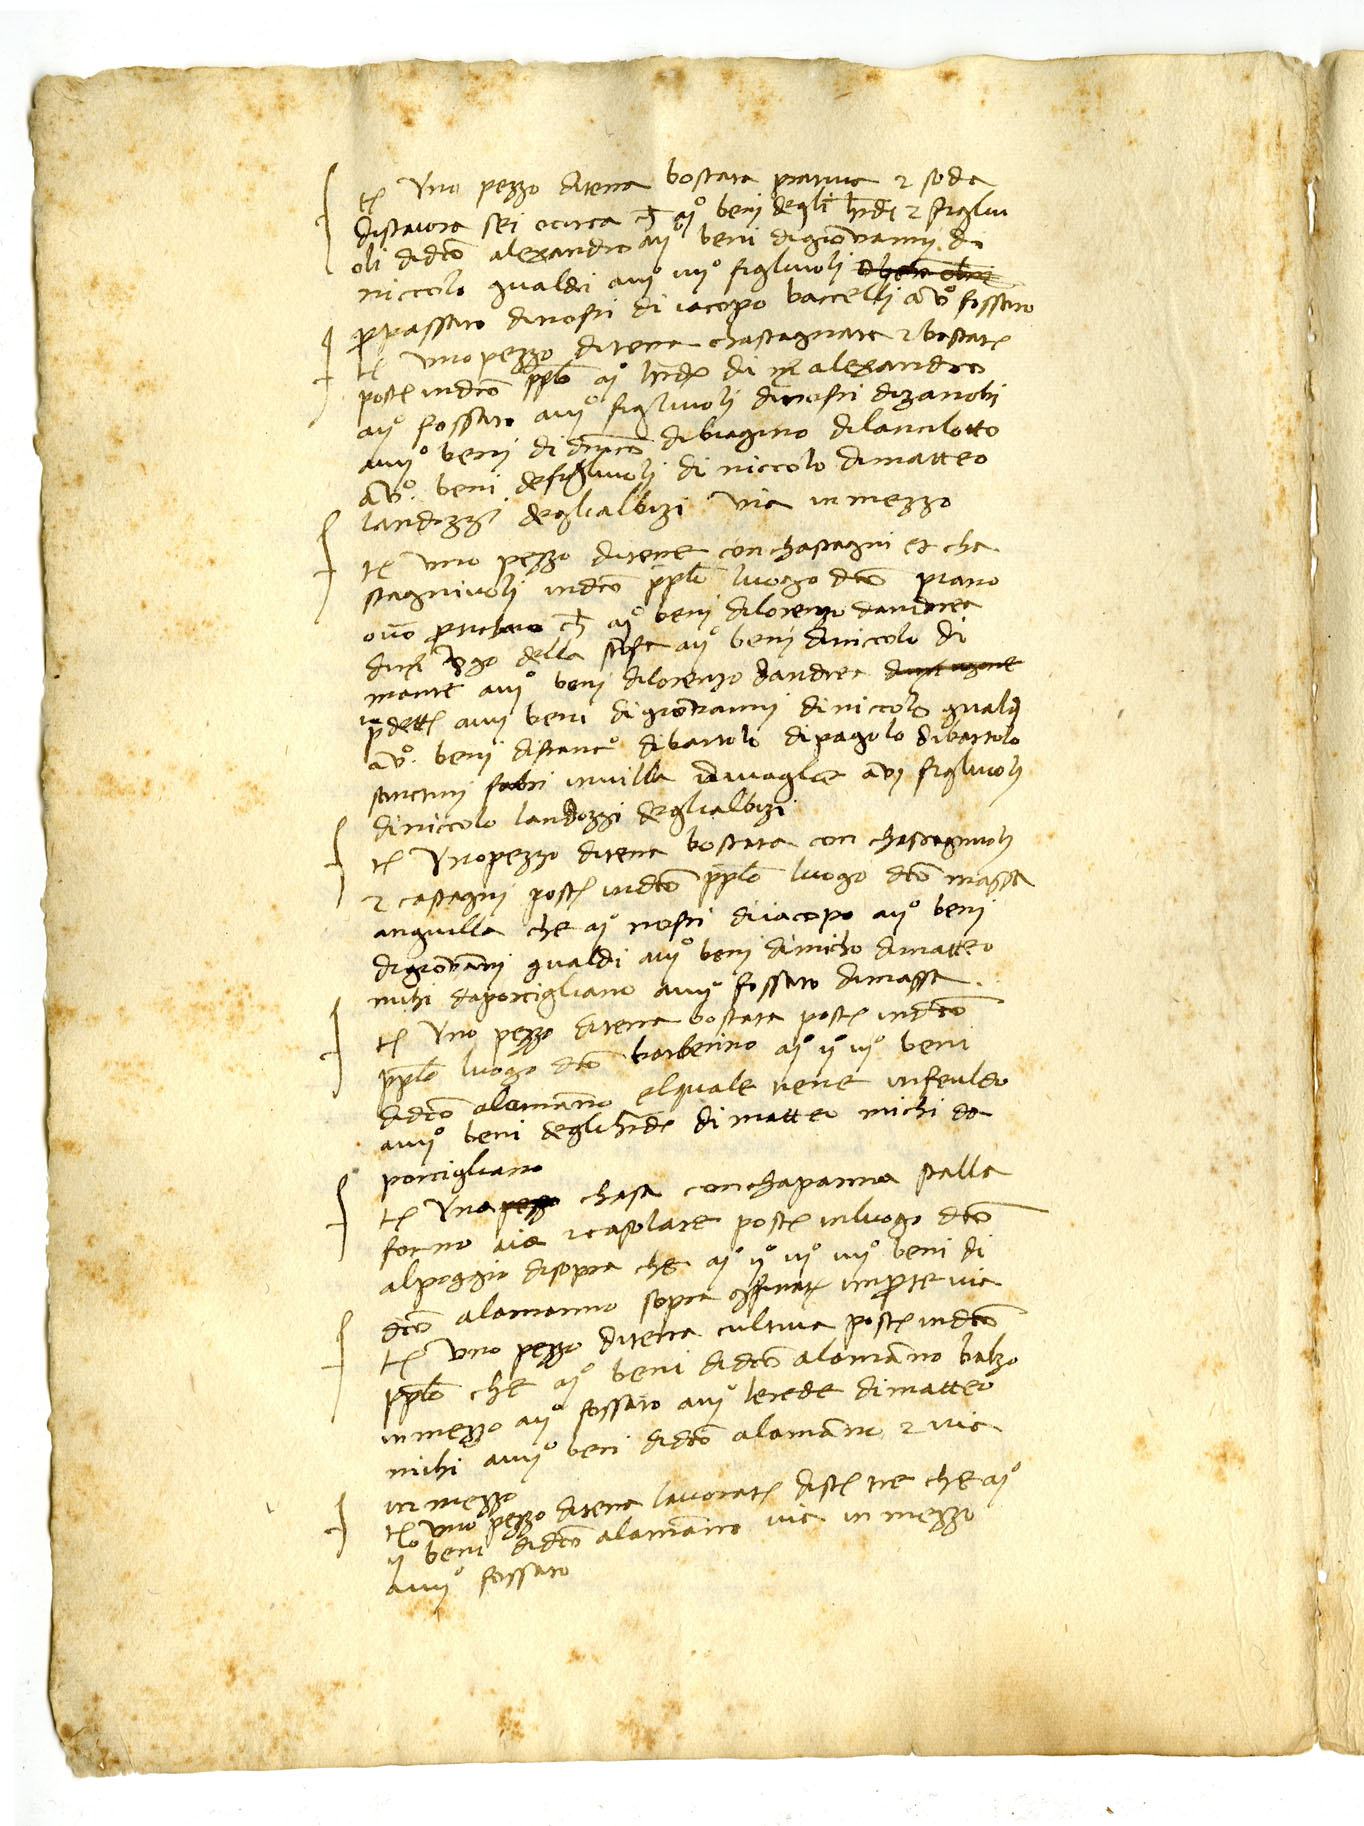 tj Uno pezzo diterra boscata pratiua 2 soda
distaiora sei ocirca ch ajo beni degli hrdi 2 figliu
oli didco alexandro aijo beni digiovannj di
niccolo gualdi aiijo iiijo figliuoli
ppassato dinofri di iacopo baccellj avo fossato
tj uno pezzo diterra chastagnata 2 boscata
posto indco pplo ajo hrdj di mr alexandro
aijo fossato aiijo figliuolj dinofri dizanobi
aiiijo benj di dnico dibiagino dilancilotto
avo beni defigliuolj di niccolo dimatteo
landozzi deglialbizi via inmezzo
tj uno pezzo diterre conchastagni et cha
stagniuolj indco pplo luogo dco piano
ovo ch ajo benj dilorenzo dandrea
dimr Ugo della stufa aijo benj diniccolo di
mante aiijo benj dilorenzo dandrea
pdetto aiiij beni digiovannj diniccolo gualdi
avo benj difranco dibartolo dipagolo dibartolo
santinj fabri invilla avj figliuolj
diniccolo landozzi deglialbizi
tj Uno pezzo diterra boscata con chastagniuolj
2 castagnj posto indco pplo luogo dco massa
anguilla che ajo nofri diiacopo aijo benj
digiovannj gualdi aiijo benj dimicho dimatteo
michi daporcigliano aiiijo fossato dimassa
tj Uno pezzo diterra boscata posto indco
pplo luogo dco barberino ajo ijo iijo beni
didco alamanno elquale tiene infeuldo
aiiijo beni deglihrdj di matteo michi da
porcigliano
tj Una pezzo chasa conchapanna stalla
forno aia 2 casolare posto inluogo dco
alpoggio disopra che ajo ijo iijo iiijo beni di
dco alamanno sopra inparte via
tj Uno pezzo diterra cultiua posto indco
pplo che ajo beni didco alamanno balzo
inmezzo aijo fossato aiijo lerede dimatteo
michi aiiijo beni didco alamanno 2 via
in mezzo
tj Uno pezzo diterra lauorato disto tre che ajo
ijo beni didco alamanno via in mezzo
aiiijo fossato